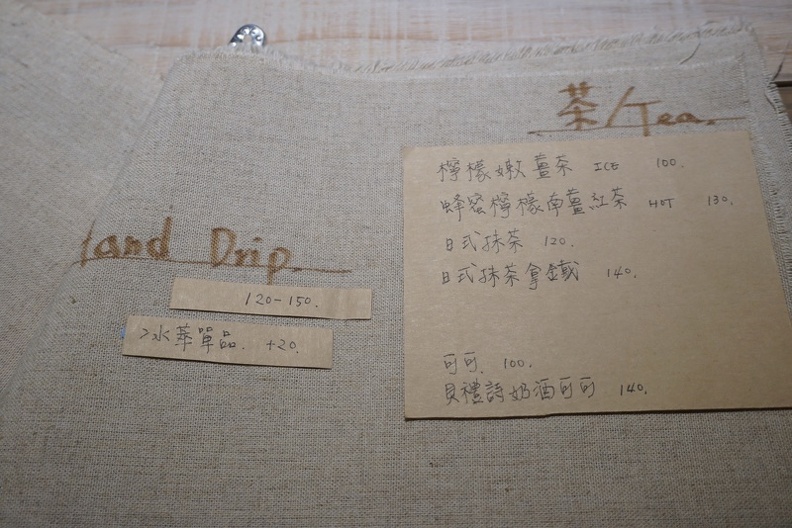 茶/Tea.
檸檬嫩薑茶 ICE 100.
蜂蜜檸檬南薑紅茶 HOT 130.
日式抹茶 120.
日式抹茶拿鐵 140.
可可. 100.
貝禮詩奶酒可可 140.
Hand Drip.
120-150.
>冰華單品. +20.